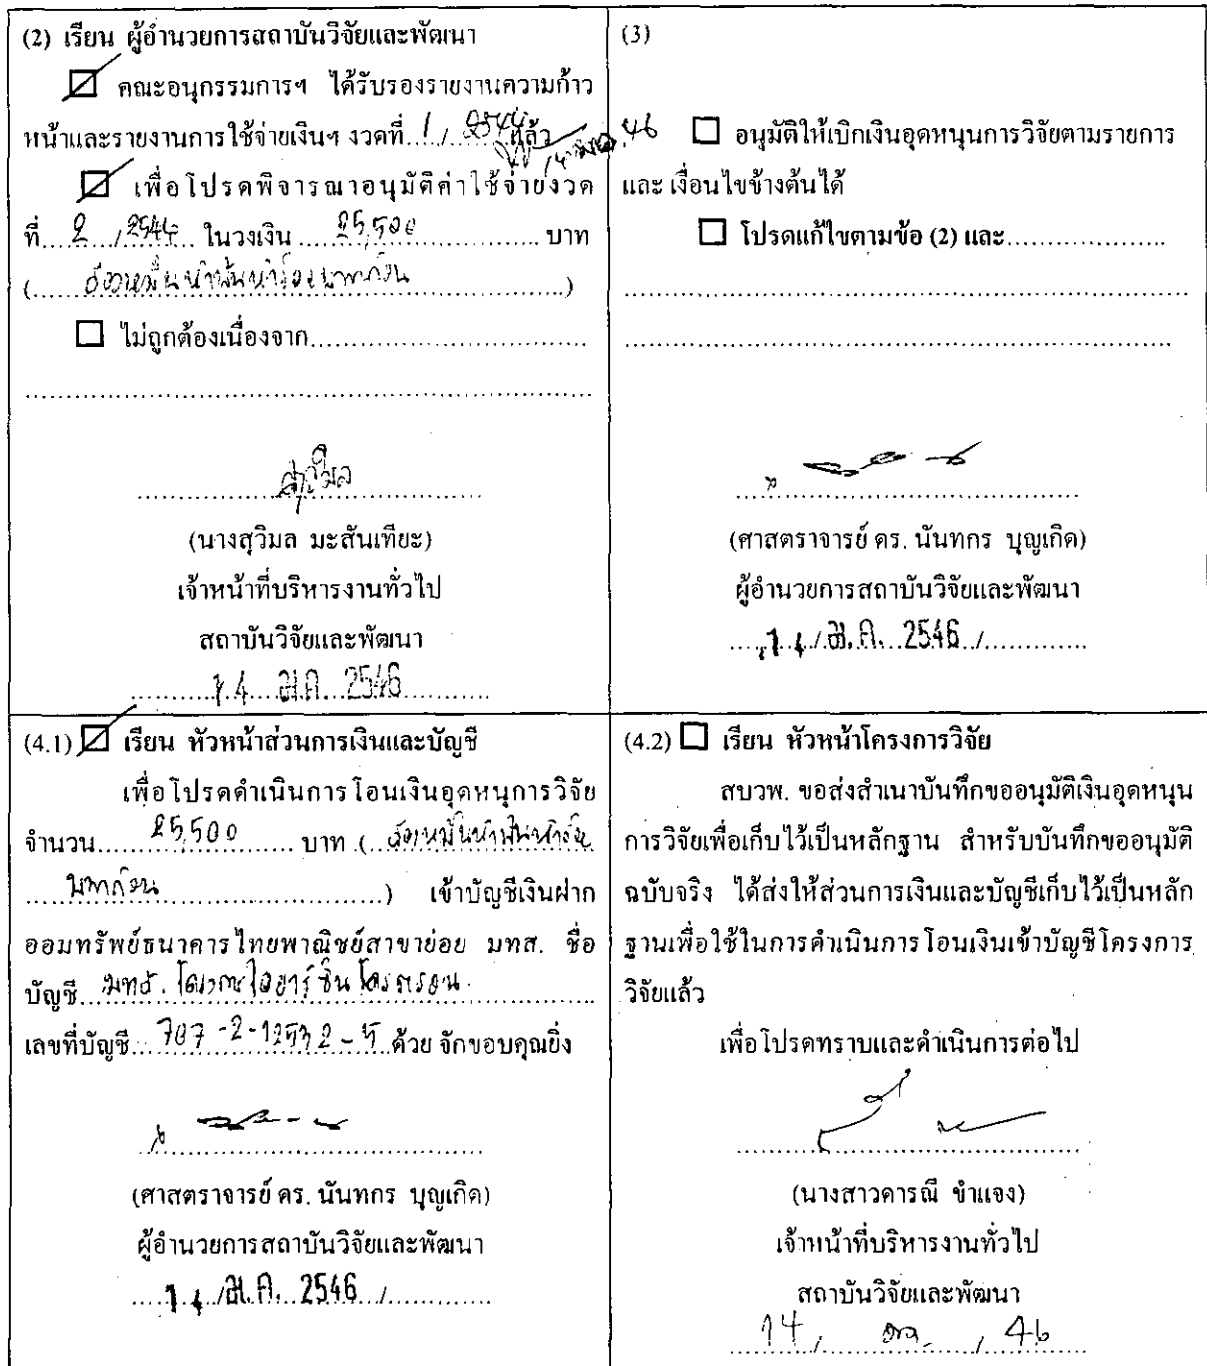 (2) เรียน ผู้อำนวยการสถาบันวิจัยและพัฒนา
คณะอนุกรรมการฯ ได้รับรองรายงานความก้าว
หน้าและรายงานการใช้จ่ายเงินฯ งวดที่...1../..2544..แล้ว
เพื่อโปรดพิจารณาอนุมัติค่าใช้จ่ายงวด
ที่...2.../2544... ในวงเงิน ......25,500...... บาท
(......สองหมื่นห้าพันห้าร้อยบาทถ้วน......)
ไม่ถูกต้องเนื่องจาก......
สุวิมล
(นางสุวิมล มะสันเทียะ)
เจ้าหน้าที่บริหารงานทั่วไป
สถาบันวิจัยและพัฒนา
14 มี.ค. 2546
(3)
อนุมัติให้เบิกเงินอุดหนุนการวิจัยตามรายการ
และ เงื่อนไขข้างต้นได้
โปรดแก้ไขตามข้อ (2) และ......
(ศาสตราจารย์ ดร. นันทกร บุญเกิด)
ผู้อำนวยการสถาบันวิจัยและพัฒนา
14 / มี.ค. 2546 /
(4.1) เรียน หัวหน้าส่วนการเงินและบัญชี
เพื่อโปรดดำเนินการโอนเงินอุดหนุการวิจัย
จำนวน......25,500...... บาท (..สองหมื่นห้าพันห้าร้อย
บาทถ้วน......) เข้าบัญชีเงินฝาก
ออมทรัพย์ธนาคารไทยพาณิชย์สาขาย่อย มทส. ชื่อ
บัญชี...มทส.
เลขที่บัญชี...707-2-12532-5..ด้วย จักขอบคุณยิ่ง
(ศาสตราจารย์ ดร. นันทกร บุญเกิด)
ผู้อำนวยการสถาบันวิจัยและพัฒนา
14 / มี.ค. 2546 /
(4.2) เรียน หัวหน้าโครงการวิจัย
สบวพ. ขอส่งสำเนาบันทึกขออนุมัติเงินอุดหนุน
การวิจัยเพื่อเก็บไว้เป็นหลักฐาน สำหรับบันทึกขออนุมัติ
ฉบับจริง ได้ส่งให้ส่วนการเงินและบัญชีเก็บไว้เป็นหลัก
ฐานเพื่อใช้ในการดำเนินการโอนเงินเข้าบัญชีโครงการ
วิจัยแล้ว
เพื่อโปรดทราบและดำเนินการต่อไป
(นางสาวดารณี ขำแจง)
เจ้าหน้าที่บริหารงานทั่วไป
สถาบันวิจัยและพัฒนา
14 / / 46